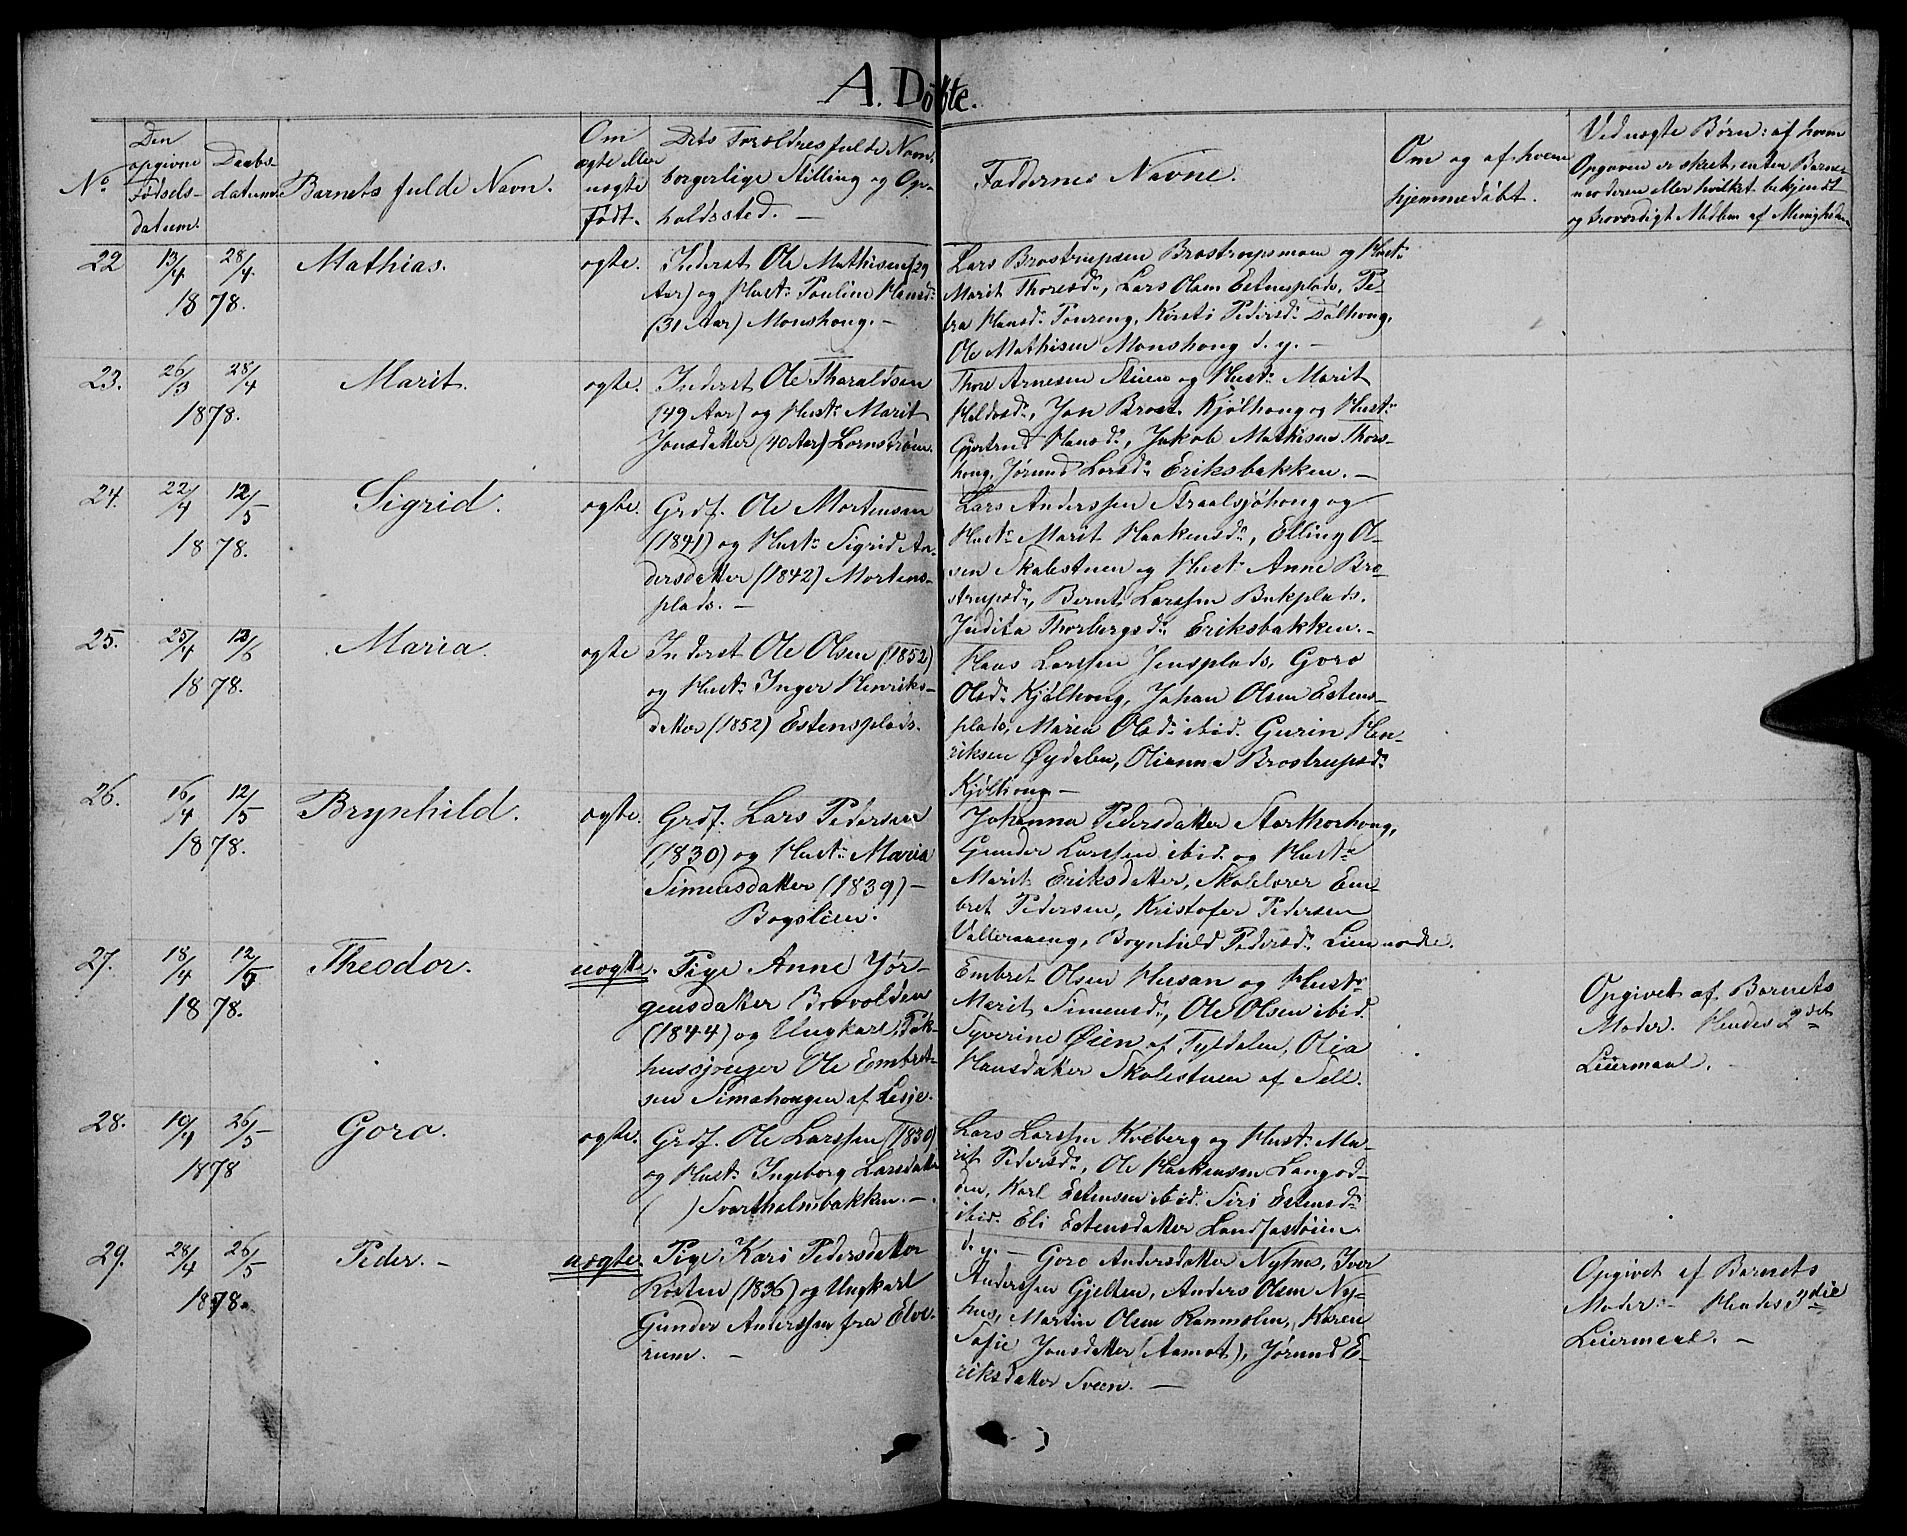 A. Døbte.
No
Den
opgivne
Fødsels-
datum.
Daabs-
datum.
Barnets fulde Navn.
Om
ægte eller
uægte
Født.
Dets Forældres fulde Navn,
borgerlige Stilling og Op-
holdssted. —
Faddernes Navne.
Om og af hvem
hjemmedøbt.
Ved uægte Børn: af hvem
Opgaven er skeet, enten Barne-
moderen eller hvilket bekjendt
og troværdigt Medlem af Menigheden
22
13/4
28/4
1878.
Mathias.
ægte.
Inderst Ole Mathisen (29
Aar) og Hust. Pauline Hansd.
(31 Aar) Monshoug. —
Lars Brostrupsen Brostrupsmoen og Hust.
Marit Thoresd., Lars Olsen Estensplads, Pe-
tra Hansd. Toureng, Kirsti Pedersd. Dalhoug,
Ole Mathisen Monshoug d. y. —
23.
26/3
28/4
1878.
Marit.
ægte.
Inderst Ole Tharaldsen
(49 Aar) og Hust. Marit
Jonsdatter (40 Aar) Lornstrøen.
Thore Arnesen Stuen og Hust. Marit
Haldosd., Jon Brost. Kjølhoug og Hust.
Gjertrud Hansd., Jakob Mathisen Thors-
houg, Jørund Larsd. Eriksbakken. —
24.
22/4
12/5
1878.
Sigrid.
ægte.
Grdf. Ole Mortensen
(1841) og Hust. Sigrid An-
dersdatter (1842) Mortens-
plads. —
Lars Anderssen Straalsjøhoug og
Hust. Marit Haakensd., Elling Ol-
sen Skolestuen og Hust. Anne Bro-
strupsd., Bernt Larssen Bekplads.
Judita Thorbergsd. Eriksbakken. —
25.
25/4
12/5
1878.
Maria.
ægte
Inderst Ole Olsen (1852)
og Hust. Inger Henriks-
datter (1852) Estensplads.
Hans Larssen Jensplads, Goro
Olsd. Kjølhoug, Johan Olsen Estens-
plads, Maria Olsd. ibid. Gurin Hen-
riksen Øydalen, Olianna Brostrupsd.
Kjølhoug —
26.
16/4
12/5
1878.
Brynhild.
ægte.
Grdf. Lars Pedersen
(1830) og Hust. Maria
Simensdatter (1839) —
Bogslien.
Johanna Pedersdatter Storthorhoug,
Gunder Larssen ibid. og Hust.
Marit Eriksdatter, Skolelærer Em-
bret Pedersen, Kristofer Pedersen
Brynhild Pedersd. Lien nordre.
27.
18/4
12/5
1878.
Theodor.
uægte.
Pige Anne Jør-
gensdatter Brovolden
(1844) og Ungkarl, Tøk-
Ole Embret-
sen Simahaugen af Lesje.
Embret Olsen Husan og Hust.
Marit Simensd., Ole Olsen ibid.
Syverine Øien af Tyldalen, Olia
Hansdatter Skolestuen af Sell.
Opgivet af Barnets
Moder. Hendes 2det
Leiermaal.
28.
19/4
26/5
1878
Goro.
ægte.
Grdf. Ole Larssen (1830)
og Hust. Ingeborg Larsdatter
( ) Svartholmbakken. —
Lars Larssen Kveberg og Hust. Ma-
rit Pedersd., Ole Haakensen Langod-
den, Karl Estensen ibid. Siri Estensd.
ibid. Eli Estensdatter Landfastøien
29.
28/4
26/5
1878.
Peder. —
uægte.
Pige Kari Pedersdatter
Røsten (1836) og Ungkarl
Gunder Anderssen fra Elve-
rum. —
d. y. — Goro Andersdatter Nyhus, Iver
Anderssen Gjelten, Anders Olsen Ny-
hus, Martin Olsen Ranmolen, Karen
Sofie Jonsdatter (Aamot), Jørund E-
riksdatter Sveen. —
Opgivet af Barnets
Moder. — Hendes 3die
Leiermaal. —